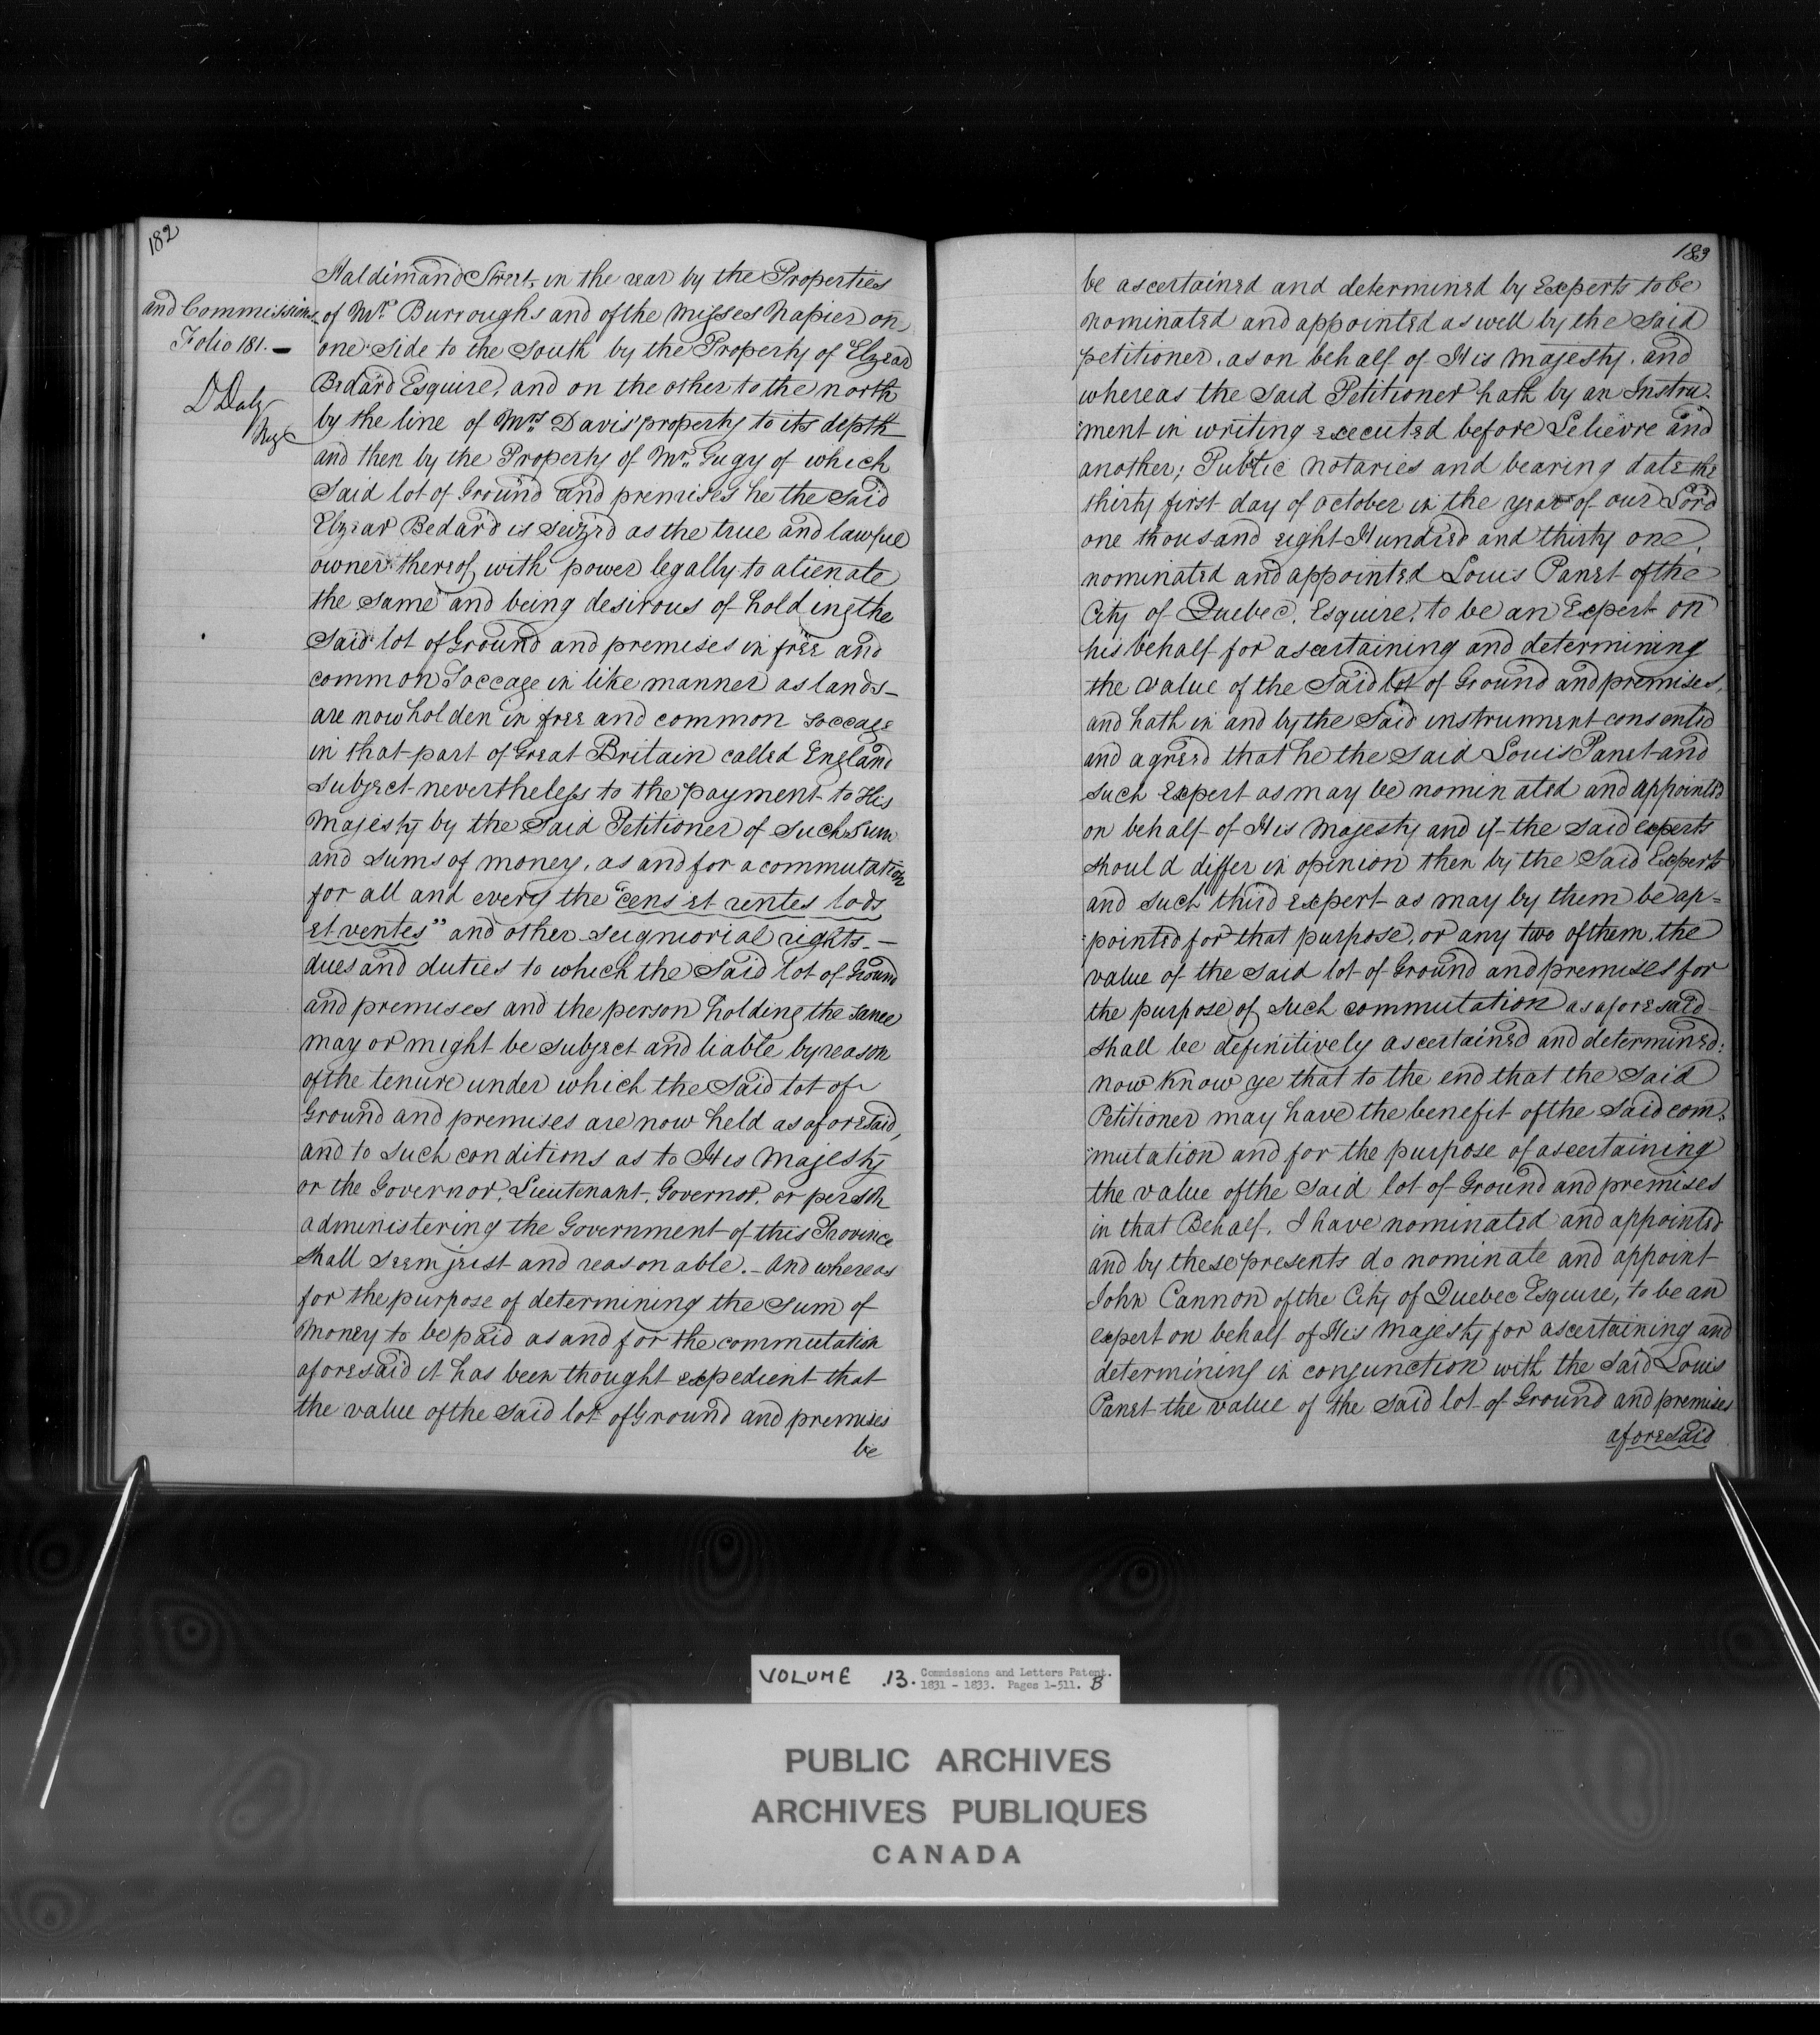 182
and Commissions
Folio 181. —
D Daly
Regr
Haldimand Street, in the rear by the Properties
of Mr. Burroughs and of the Misses Napier on
one Side to the South by the Property of Elzear
Bedard Esquire, and on the other to the north
by the line of Mrs. Davis' property to its depth
and then by the Property of Mr. Gugy of which
Said lot of Ground and premises he the Said
Elzear Bedard is Seized as the true and lawful
owner thereof, with power legally to alienate
the same and being desirous of holding the
Said lot of Ground and premises in free and
common Soccage in like manner as lands —
are now holden in free and common soccage
in that part of Great Britain called England
Subject nevertheless to the payment to His
Majesty by the Said Petitioner of such Sum
and Sums of money, as and for a commutation
for all and every the "cens et rentes lods
et ventes" and other Seignorial rights. —
dues and duties to which the Said lot of Ground
and premises and the person holding the same
may or might be subject and liable by reason
of the tenure under which the Said lot of
Ground and premises are now held as aforesaid,
and to such conditions as to His Majesty
or the Governor, Lieutenant-Governor, or person
administering the Government of this Province
shall seem just and reasonable. — And whereas
for the purpose of determining the Sum of
Money to be paid as and for the commutation
aforesaid it has been thought expedient that
the value of the Said lot of Ground and premises
be
183
be ascertained and determined by Experts to be
nominated and appointed as well by the Said
petitioner, as on behalf of His Majesty, and
whereas the Said Petitioner hath by an Instru-
"ment in writing executed before Lelièvre and
another; Public Notaries and bearing date the
thirty first day of October in the year of our Lord
one thousand eight Hundred and thirty one,
nominated and appointed Louis Panet of the
City of Quebec, Esquire, to be an Expert on
his behalf for ascertaining and determining
the value of the Said lot of Ground and premises,
and hath in and by the Said instrument consented
and agreed that he the Said Louis Panet and
such Expert as may be nominated and appointed
on behalf of His Majesty and if the said experts
should differ in opinion then by the Said Experts
and such third expert as may by them be ap=
"pointed for that purpose, or any two of them, the
value of the Said lot of Ground and premises for
the purpose of such commutation as aforesaid
shall be definitively ascertained and determined:
now know ye that to the end that the Said
Petitioner may have the benefit of the Said com-
"mutation and for the purpose of ascertaining
the value of the Said lot of Ground and premises
in that Behalf, I have nominated and appointed
and by these presents do nominate and appoint
John Cannon of the City of Quebec Esquire, to be an
expert on behalf of His Majesty for ascertaining and
determining in conjunction with the Said Louis
Panet the value of the Said lot of Ground and premises
aforesaid
VOLUME .13. Commissions and Letters Patent.
1831 - 1833. Pages 1-511. B
PUBLIC ARCHIVES
ARCHIVES PUBLIQUES
CANADA